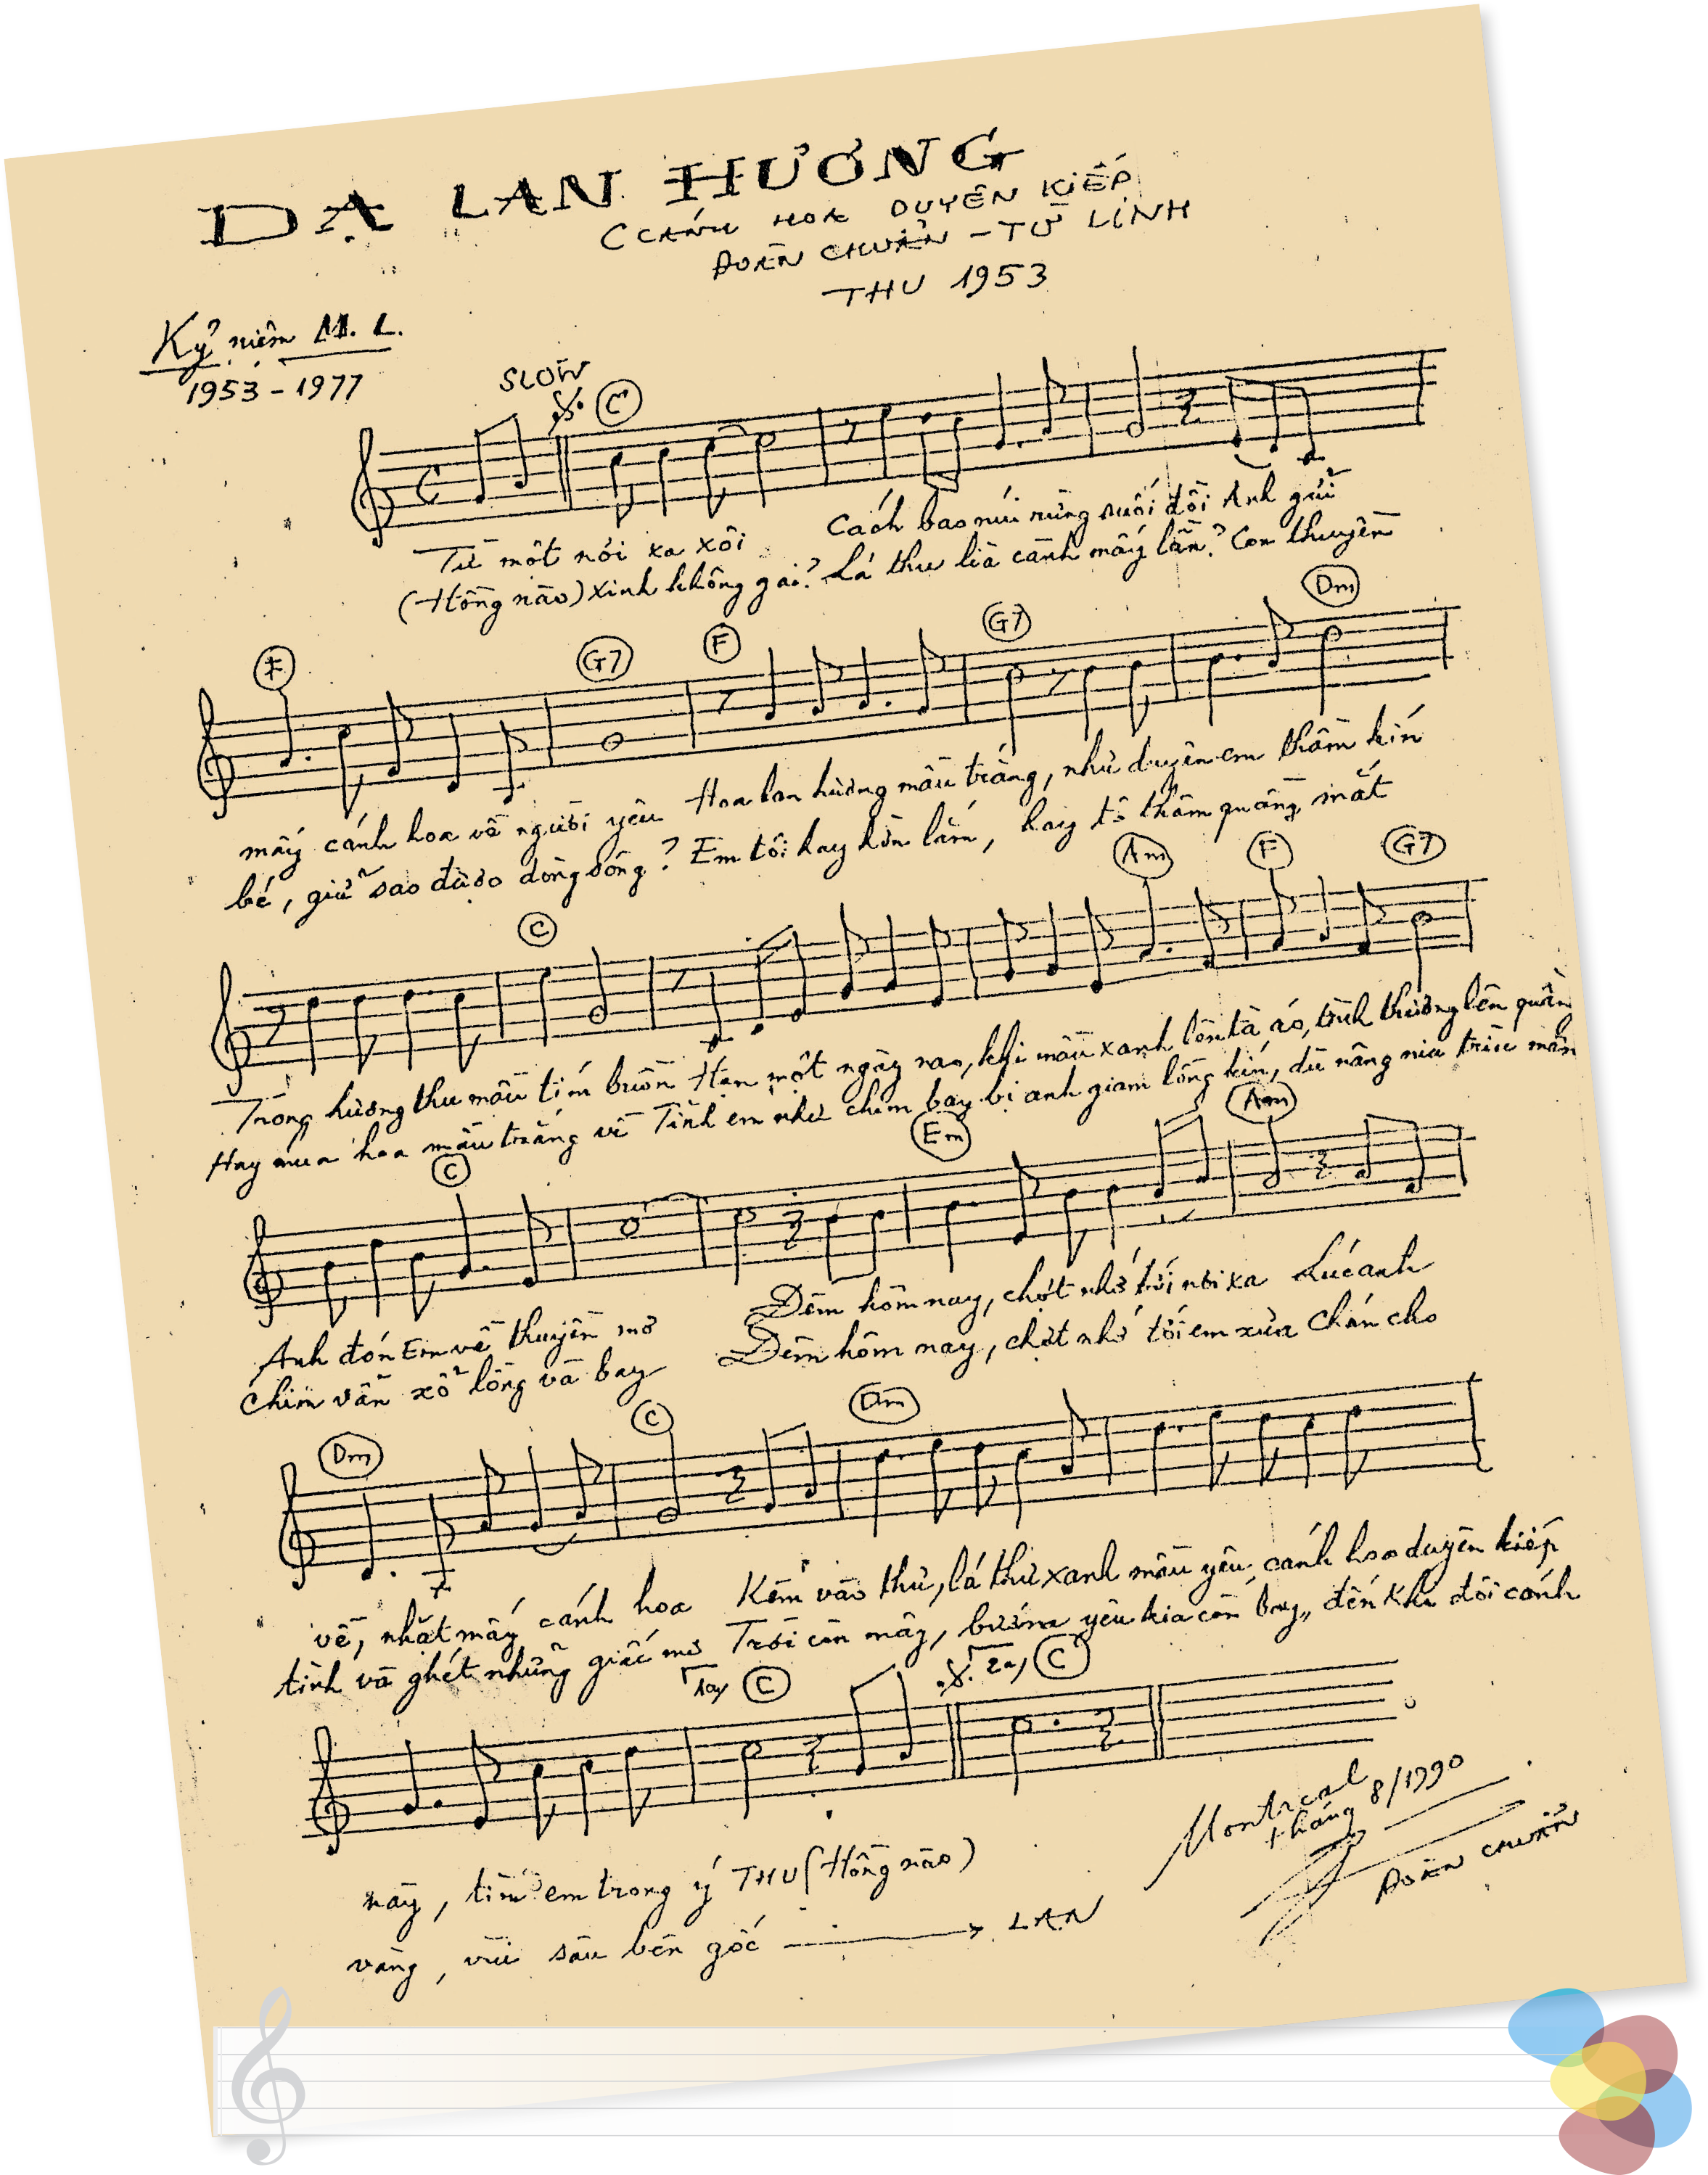 DẠ LAN HƯƠNG
(CÁNH HOA DUYÊN KIẾP
ĐOÀN CHUẨN - TỪ LINH
THU 1953
Kỷ niệm M. L.
1953 - 1977
SLOW
C
Từ một nơi xa xôi Cách bao núi rừng suối đồi Anh gửi
(Hồng nào) xinh không gai? Lá thư lìa cành mấy lần? Con thuyền
F G7 F G7 Dm
mấy cánh hoa về người yêu Hoa lan hương mầu trắng, như duyên em thầm kín
bé, giữ sao được dòng sông? Em tôi hay hờn lắm, hay tô thâm quầng mắt
C Am F G7
Trong hương thu mầu tím buồn Hẹn một ngày nao, khi mầu xanh lên tà áo, tình thương lên quầng
Hay mùa hoa mầu trắng về Tình em như chim bay bị anh giam lồng kín, dù nâng niu trìu mến
C Em Am
Anh đón Em về thuyền mơ Đêm hôm nay, chợt nhớ tới nơi xa Lúc anh
Chim vẫn xổ lồng và bay Đêm hôm nay, chợt nhớ tới em xưa Chán cho
Dm C Dm
về, nhặt mấy cánh hoa Kèm vào thư, lá thư xanh mầu yêu, cánh hoa duyên kiếp
tình và ghét những giấc mơ Trời còn mây, bướm yêu kia còn bay, đến khi đôi cánh
1ay C 2ay C
này, tìm em trong ý THU (Hồng nào)
vàng, vùi sâu bên gốc LAN
Montreal
tháng 8/1990
ĐOÀN CHUẨN